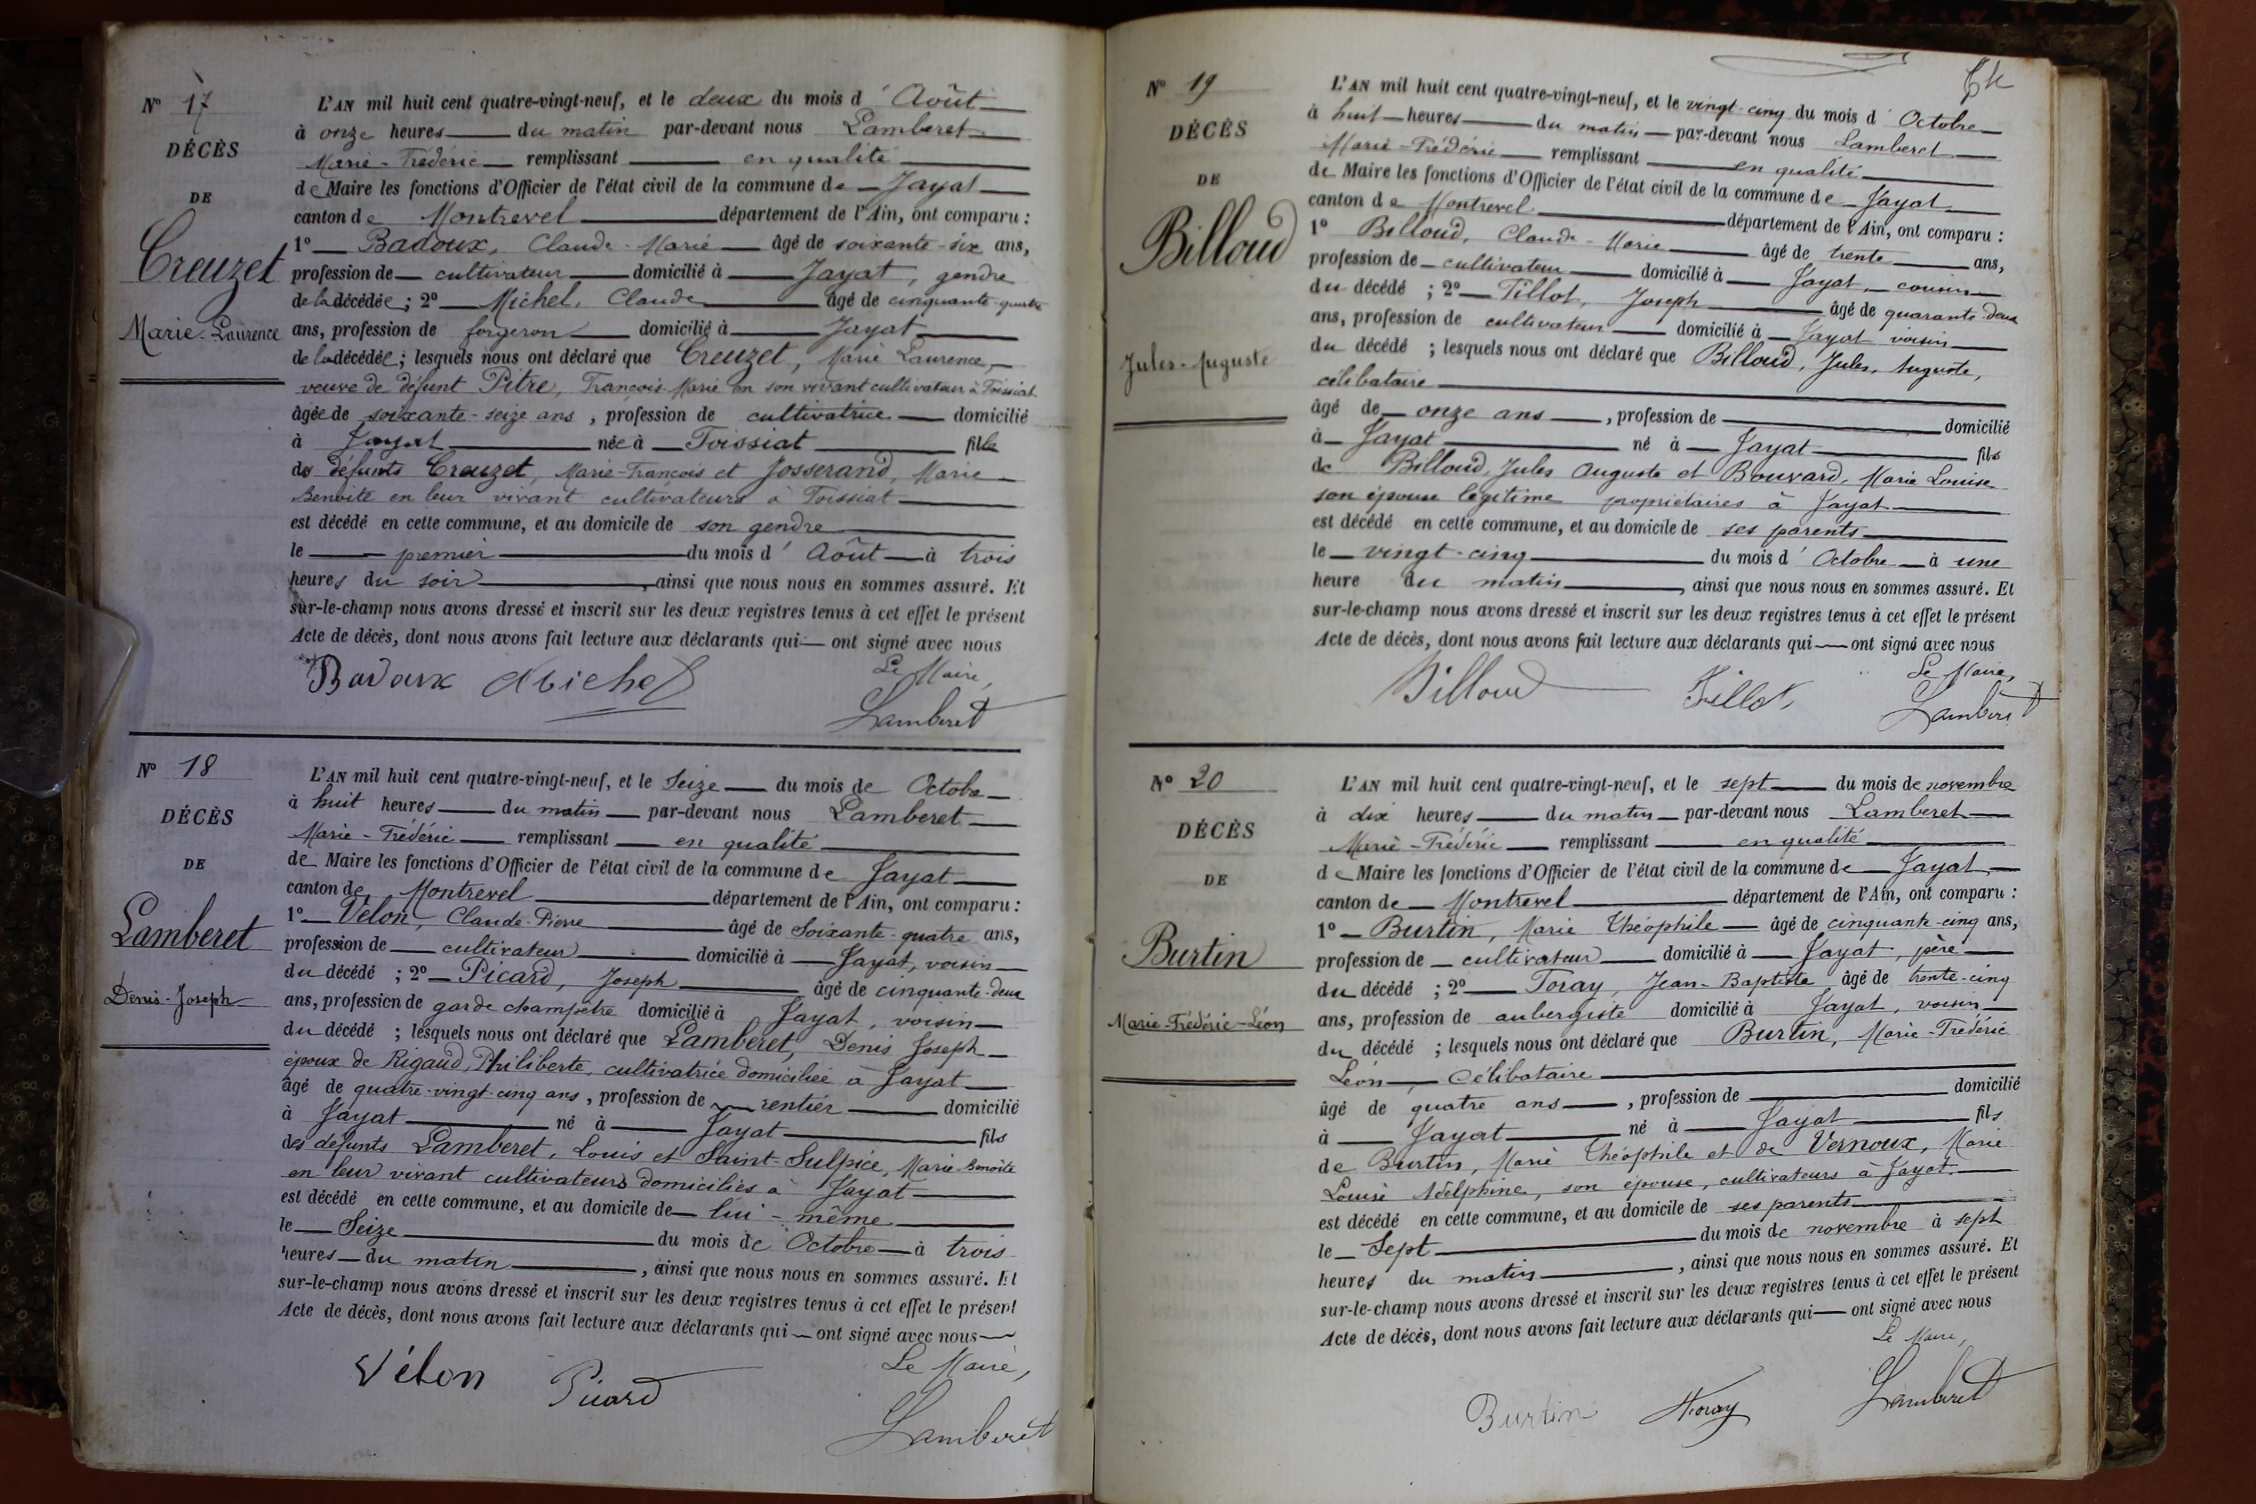 N° 17
DÉCÈS
DE
Creuzet
Marie-Laurence
L'AN mil huit cent quatre-vingt-neuf, et le deux du mois d'Août
à onze heures du matin par-devant nous Lamberet
Marie-Frédéric remplissant en qualité
de Maire les fonctions d'Officier de l'état civil de la commune de Jayat
canton de Montrevel département de l'Ain, ont comparu :
1° Badoux, Claude-Marie âgé de soixante-six ans,
profession de cultivateur domicilié à Jayat, gendre
de la décédée ; 2° Michel, Claude âgé de cinquante-quatre
ans, profession de forgeron domicilié à Jayat
de la décédée ; lesquels nous ont déclaré que Creuzet, Marie Laurence,
veuve de défunt Pitre, François Marie en son vivant cultivateur à Foissiat
âgée de soixante-seize ans, profession de cultivatrice domicilié
à Jayat née à Foissiat fille
des défunts Creuzet, Marie-François et Josserand, Marie
Benoite en leur vivant cultivateurs à Foissiat
est décédé en cette commune, et au domicile de son gendre
le premier du mois d'Août à trois
heures du soir, ainsi que nous nous en sommes assuré. Et
sur-le-champ nous avons dressé et inscrit sur les deux registres tenus à cet effet le présent
Acte de décès, dont nous avons fait lecture aux déclarants qui ont signé avec nous
Badoux Michel Le Maire,
Lamberet
N° 18
DÉCÈS
DE
Lamberet
Denis-Joseph
L'AN mil huit cent quatre-vingt-neuf, et le Seize du mois de Octobre
à huit heures du matin par-devant nous Lamberet
Marie-Frédéric remplissant en qualité
de Maire les fonctions d'Officier de l'état civil de la commune de Jayat
canton de Montrevel département de l'Ain, ont comparu :
1° Vélon, Claude-Pierre âgé de Soixante-quatre ans,
profession de cultivateur domicilié à Jayat, voisin
du décédé ; 2° Picard, Joseph âgé de cinquante-deux
ans, profession de garde champêtre domicilié à Jayat, voisin
du décédé ; lesquels nous ont déclaré que Lamberet, Denis Joseph
époux de Rigaud, Philiberte, cultivatrice domiciliée à Jayat
âgé de quatre-vingt-cinq ans, profession de rentier domicilié
à Jayat né à Jayat fils
des défunts Lamberet, Louis et Saint-Sulpice, Marie-Benoite
en leur vivant cultivateurs domiciliés à Jayat
est décédé en cette commune, et au domicile de lui-même
le Seize du mois de Octobre à trois
heures du matin, ainsi que nous nous en sommes assuré. Et
sur-le-champ nous avons dressé et inscrit sur les deux registres tenus à cet effet le présent
Acte de décès, dont nous avons fait lecture aux déclarants qui ont signé avec nous
Vélon Picard Le Maire,
Lamberet
N° 19
DÉCÈS
DE
Billoud
Jules-Auguste
L'AN mil huit cent quatre-vingt-neuf, et le vingt-cinq du mois d'Octobre
à huit heures du matin par-devant nous Lamberet
Marie-Frédéric remplissant en qualité
de Maire les fonctions d'Officier de l'état civil de la commune de Jayat
canton de Montrevel département de l'Ain, ont comparu :
1° Billoud, Claude-Marie âgé de trente ans,
profession de cultivateur domicilié à Jayat, cousin
du décédé ; 2° Tillot, Joseph âgé de quarante-deux
ans, profession de cultivateur domicilié à Jayat voisin
du décédé ; lesquels nous ont déclaré que Billoud, Jules, Auguste,
célibataire
âgé de onze ans, profession de domicilié
à Jayat né à Jayat fils
de Billoud, Jules Auguste et Bouvard, Marie Louise
son épouse légitime propriétaires à Jayat
est décédé en cette commune, et au domicile de ses parents
le vingt-cinq du mois d'Octobre à une
heure du matin, ainsi que nous nous en sommes assuré. Et
sur-le-champ nous avons dressé et inscrit sur les deux registres tenus à cet effet le présent
Acte de décès, dont nous avons fait lecture aux déclarants qui ont signé avec nous
Billoud Tillot Le Maire,
Lamberet
N° 20
DÉCÈS
DE
Burtin
Marie-Frédéric-Léon
L'AN mil huit cent quatre-vingt-neuf, et le sept du mois de novembre
à dix heures du matin par-devant nous Lamberet
Marie-Frédéric remplissant en qualité
de Maire les fonctions d'Officier de l'état civil de la commune de Jayat
canton de Montrevel département de l'Ain, ont comparu :
1° Burtin, Marie Théophile âgé de cinquante-cinq ans,
profession de cultivateur domicilié à Jayat, père
du décédé ; 2° Foray, Jean-Baptiste âgé de trente-cinq
ans, profession de aubergiste domicilié à Jayat, voisin
du décédé ; lesquels nous ont déclaré que Burtin, Marie-Frédéric
Léon, Célibataire
âgé de quatre ans, profession de domicilié
à Jayat né à Jayat fils
de Burtin, Marie Théophile et de Vernoux, Marie
Louise Adelphine, son épouse, cultivateurs à Jayat.
est décédé en cette commune, et au domicile de ses parents
le Sept du mois de novembre à sept
heures du matin, ainsi que nous nous en sommes assuré. Et
sur-le-champ nous avons dressé et inscrit sur les deux registres tenus à cet effet le présent
Acte de décès, dont nous avons fait lecture aux déclarants qui ont signé avec nous
Le Maire,
Burtin Foray Lamberet